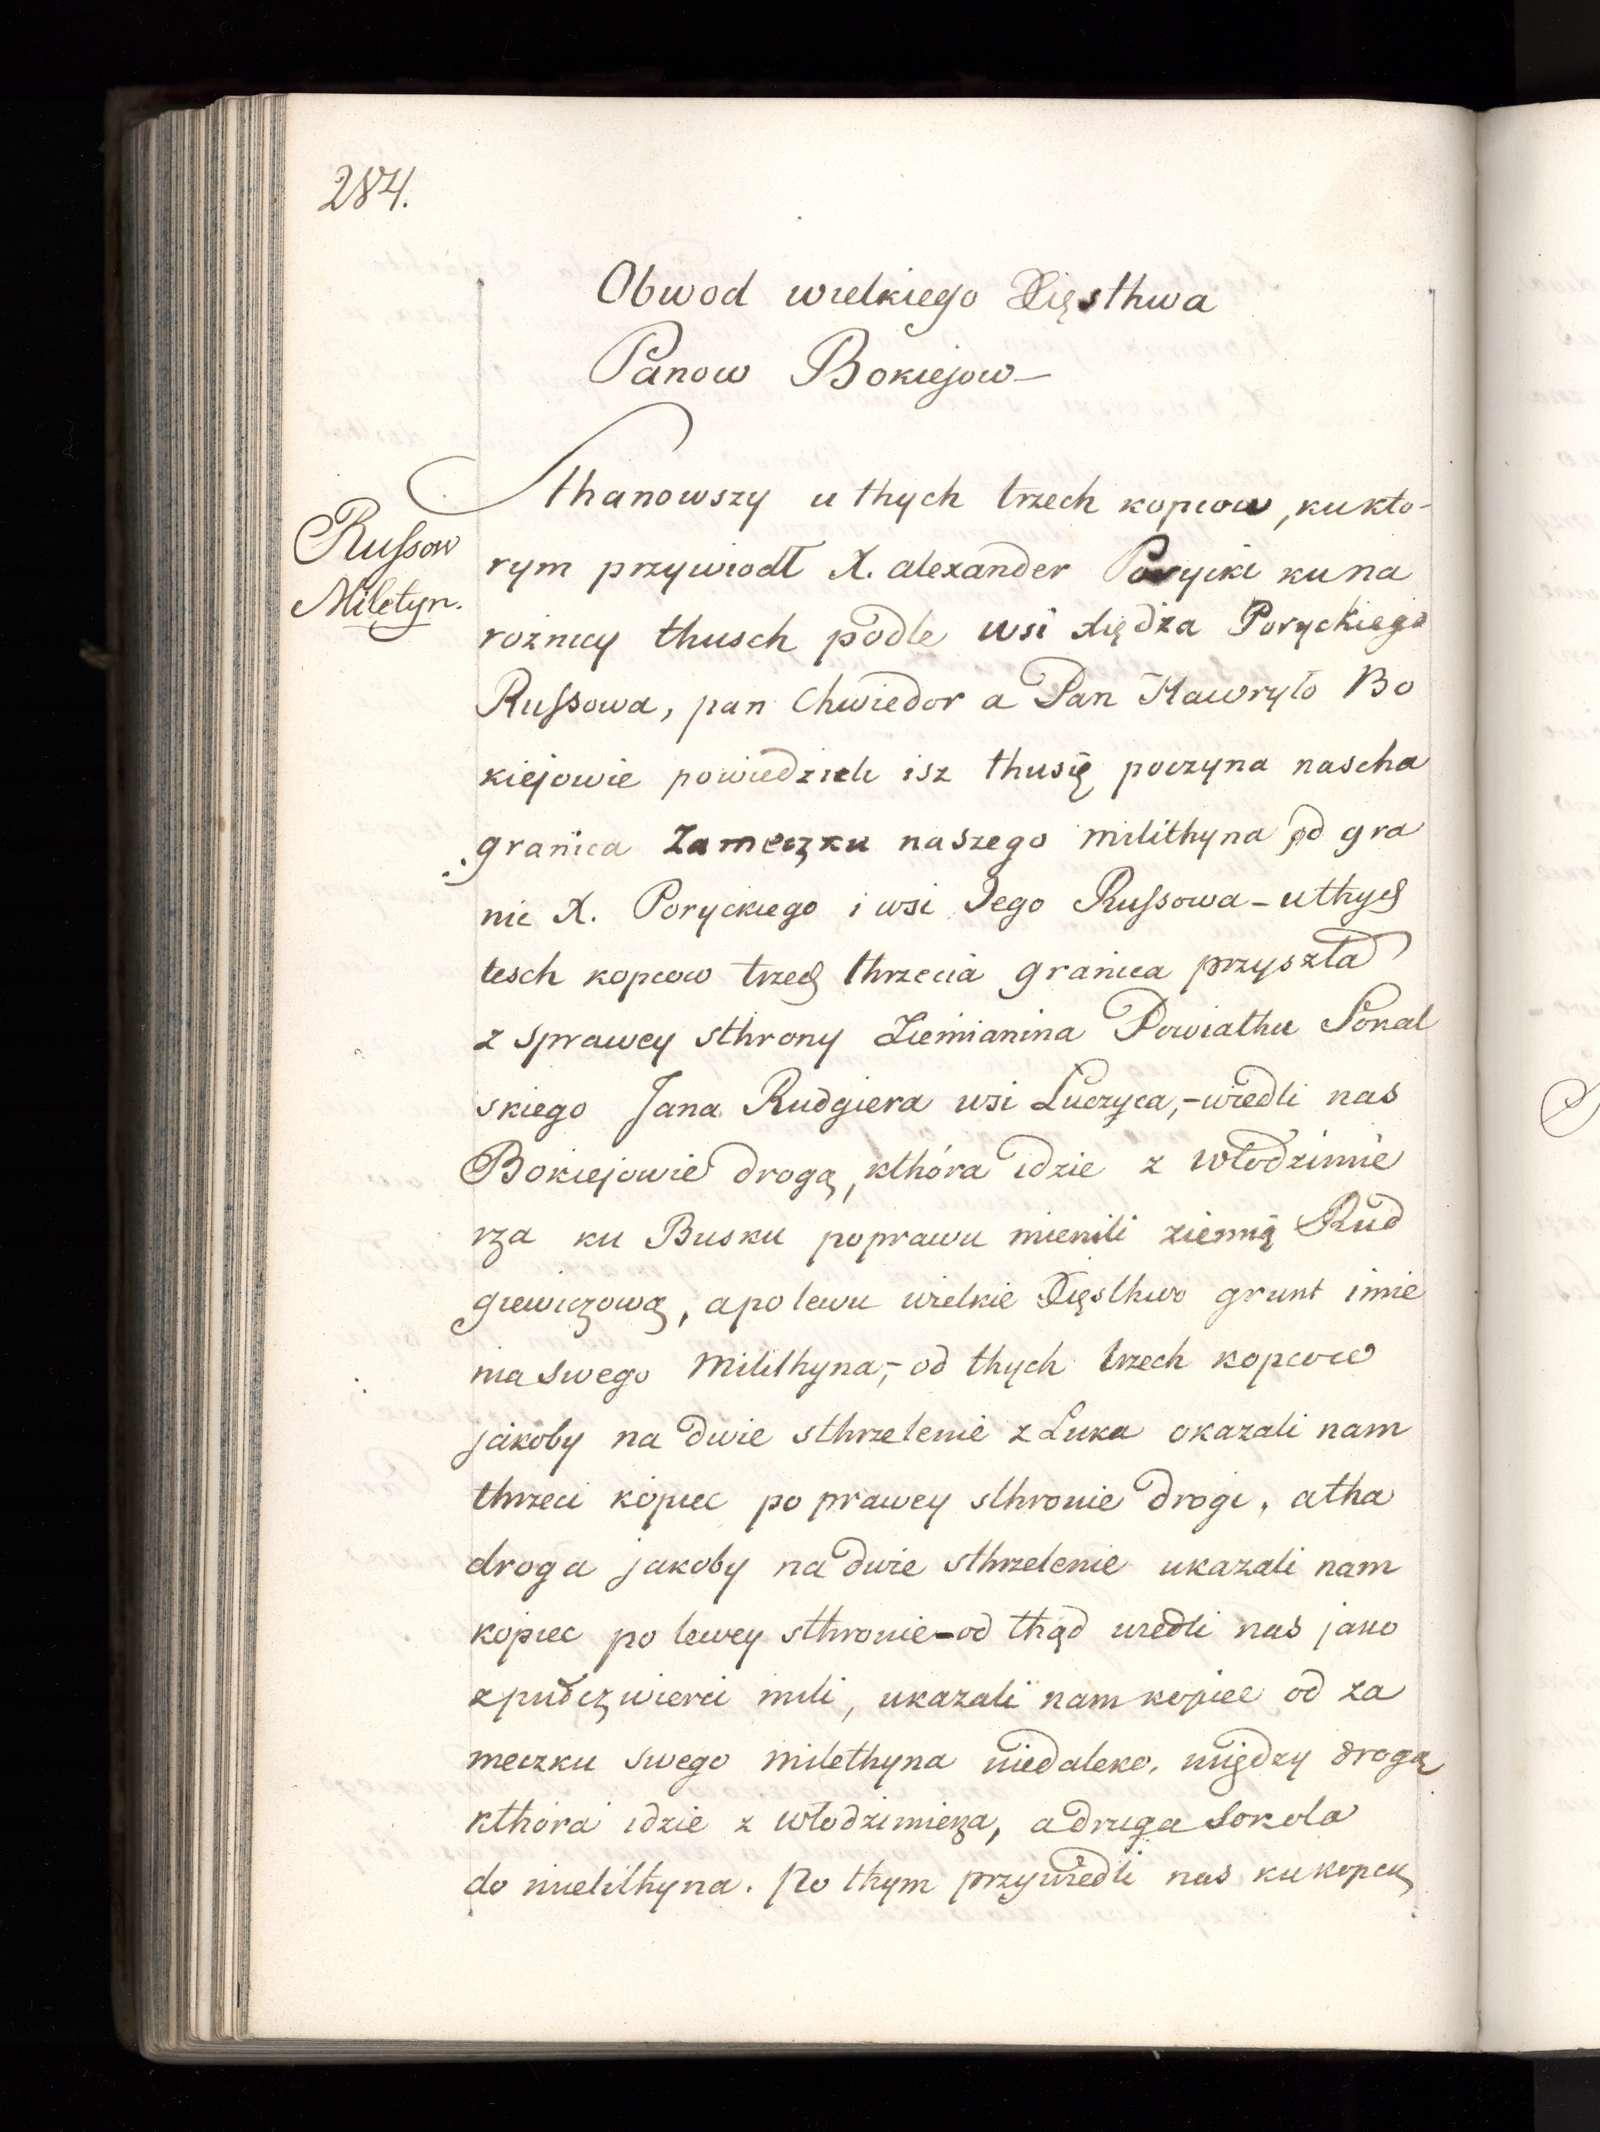 284.
Obwod wielkiego Xięsthwa
Panow Bokiejow—
Russow
Miletyn.
Sthanowszy u thych trzech kopcow, ku kto-
rym przywiodł X. alexander Porycki ku na
roznicy thusch podle wsi xiędza Poryckiego
Russowa, pan Chwiedor a Pan Hawryło Bo
kiejowie powiedzieli isz thusię poczyna nascha
granica Zameczku naszego milithyna od gra
nic X. Poryckiego i wsi Jego Russowa – uthych
tesch kopcow trzech thrzecia granica przyszła
z sprawey sthrony Ziemianina Powiathu Sokal
skiego Jana Rudgiera wsi Luczyca, – wiedli nas
Bokiejowie drogą, kthóra idzie z włodzimie
rza ku Busku poprawu mienili ziemią Rud
giewiczową, apo lewu wielkie Xięsthwo grunt imie
nia swego Milithyna, – od thych trzech kopcow
jakoby na dwie sthrzelenie z Luka okazali nam
thrzeci kopiec po prawey sthronie drogi, atha
droga jakoby na dwie sthrzelenie ukazali nam
kopiec po lewey sthronie – od thąd wiedli nas jako
z pułczwierci mili, ukazali nam kopiec od za
meczku swego milethyna niedaleko, między drogą
kthora idzie z włodzimierza, a druga Sokola
do mielithyna. Po thym przywiedli nas ku kopcu